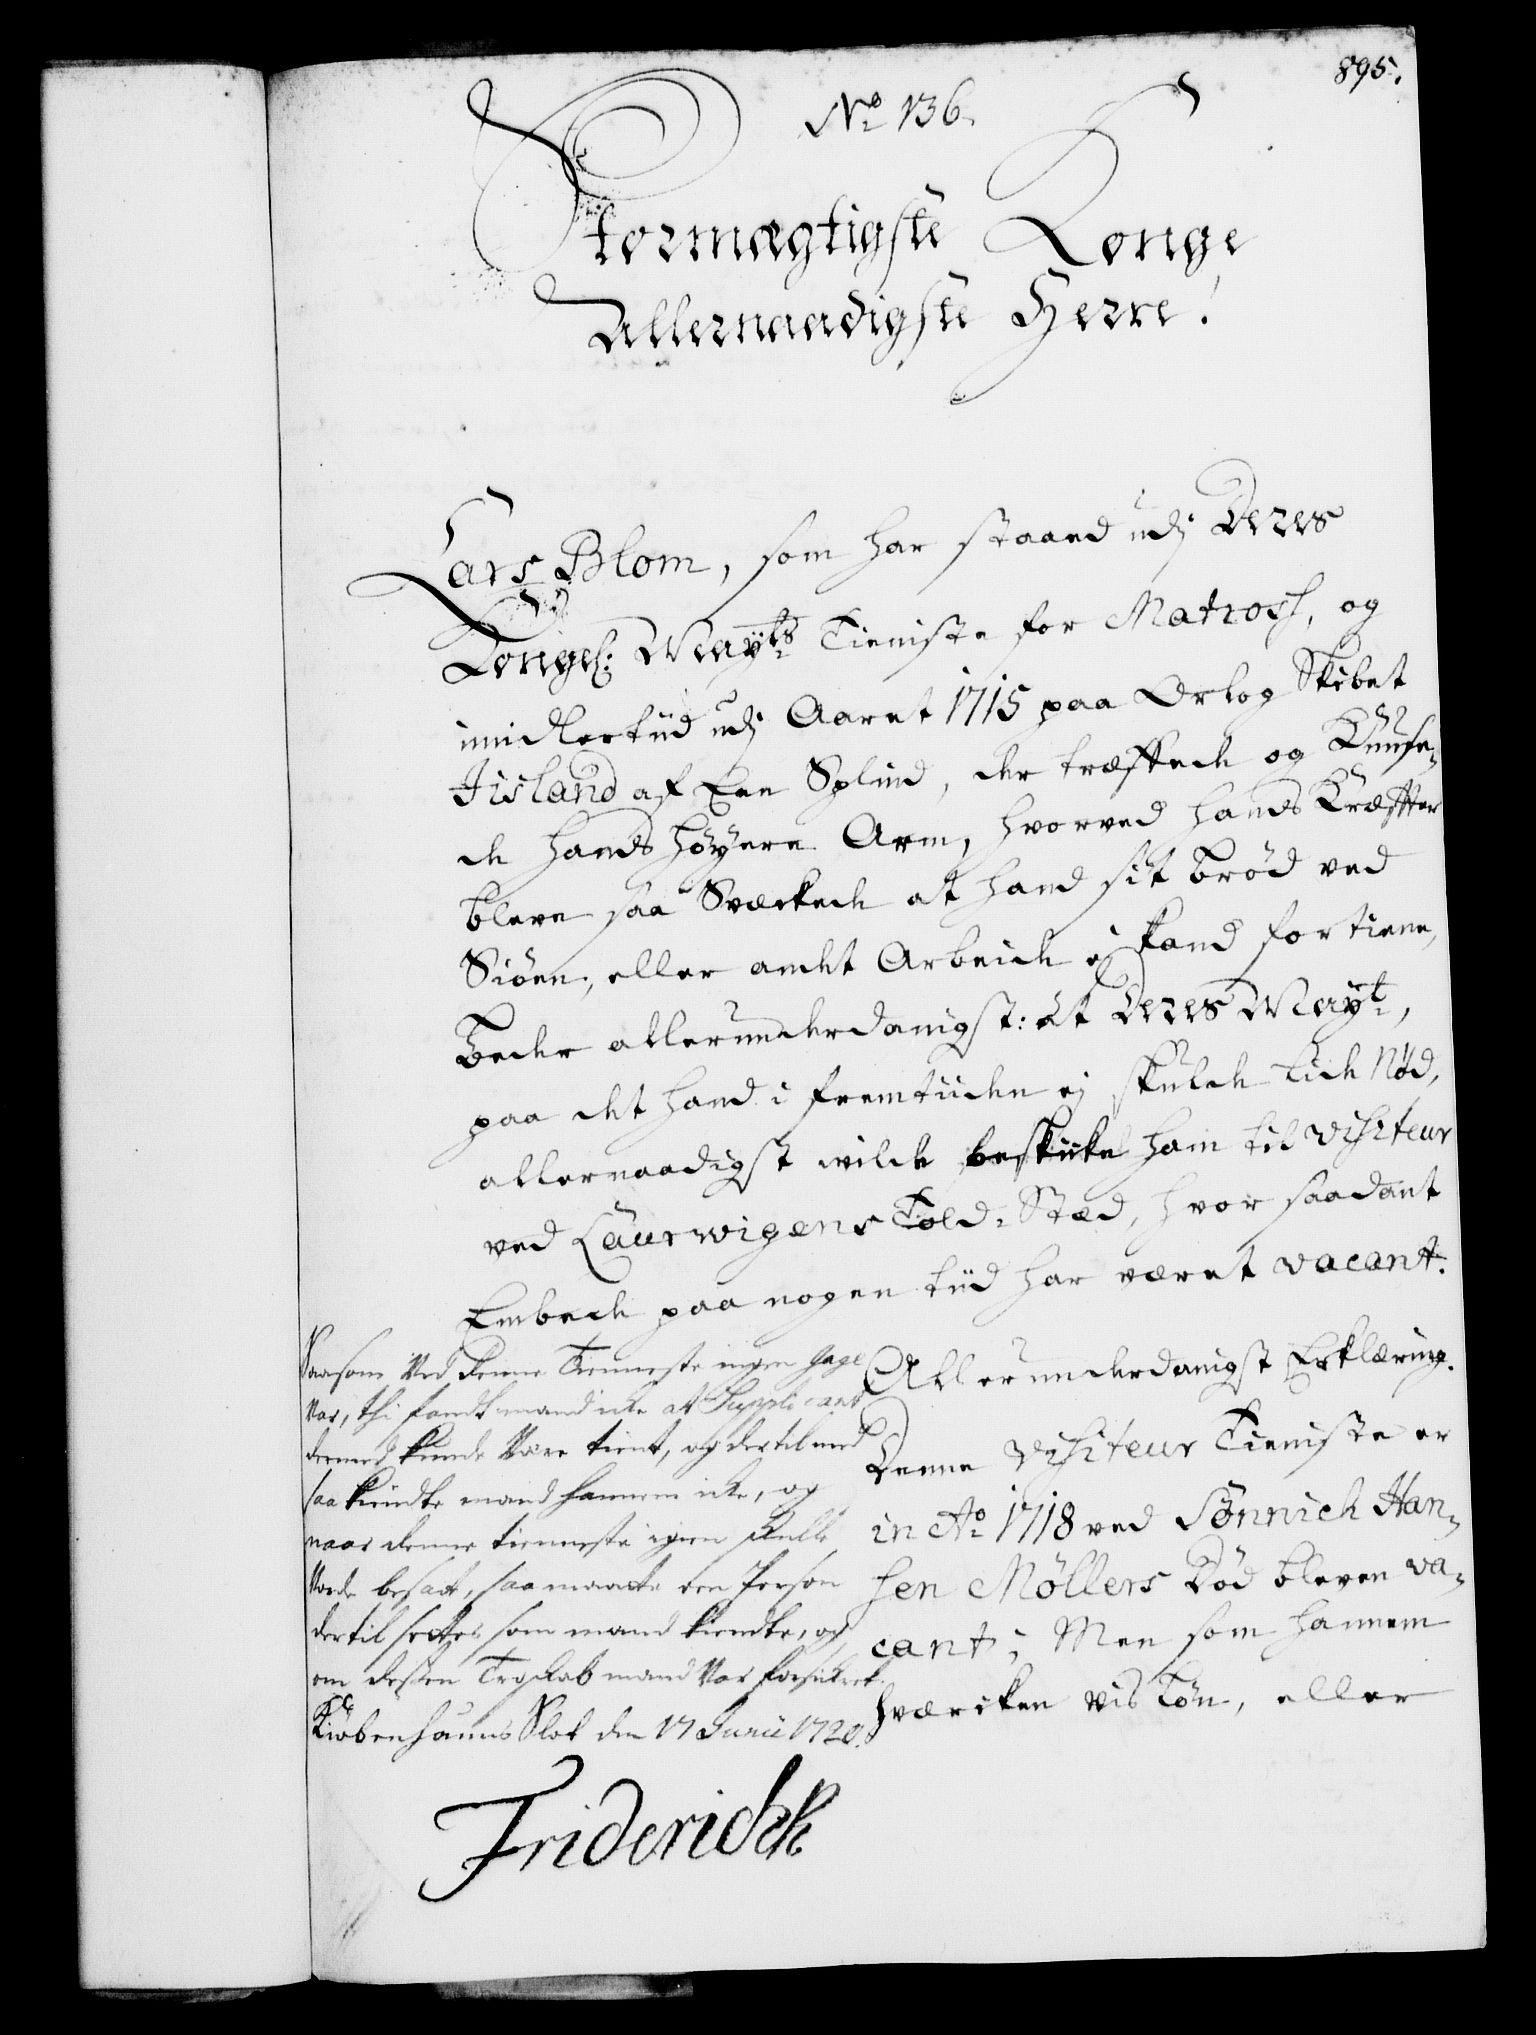 895.
No 136.
Stormægtigste Konge
Allernaadigste Herre!
Lars Blom, som har staaed udj Deres
Kongel: Mayts Tieniste for Matross, og
imidlertiid udj Aaret 1715 paa Orlog Skibet
Jisland af Een Splind, der træffede og Knuse-
de hands høyere Arm, hvorved hands Kræffter
bleve saa Svækkede at hand sit brød ved
Siöen, eller andet Arbeide ej kand fortiene,
Beder allerunderdanigst: at Deres Mayt,
paa det hand i fremtiiden ej skulde lide Nød,
allernaadigst wilde beskikke ham til Visiteur
ved Laurwigens Told-Stæd, hvor saadant
Embede paa nogen tiid har været vacant.
Allerunderdanigst Erklæring.
Denne Visiteur Tieniste er
in Ao 1718 ved Sønnich Han-
sen Møllers Død bleven va-
cant; Men som hannem
hværcken vis Løn, eller
Saasom Ved denne Tienneste ingen Gage
Var, thi fandt mand icke at Supplicant
dermed kunde Være tient, og dertil med
saa kiendte mand hannem icke, og
naar denne tienneste igien skulle
Vorde besadt, saa maatte een Person
dertil settes som mand kiendte, og
om dessen Troskab mand Var forsickret.
Kiøbenhauns Slot den 17 Junii 1720.
Friderich R